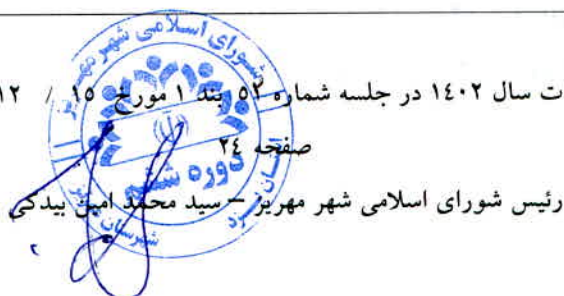 ت سال ۱٤۰۲ در جلسه شماره ٥۲ بند ۱ مورخ ۱٥ / ۱۲
صفحه ۲٤
رئیس شورای اسلامی شهر مهریز – سید محمد امین بیدکی
شورای اسلامی شهر مهریز
دوره ششم
استان یزد
شهرستان مهریز